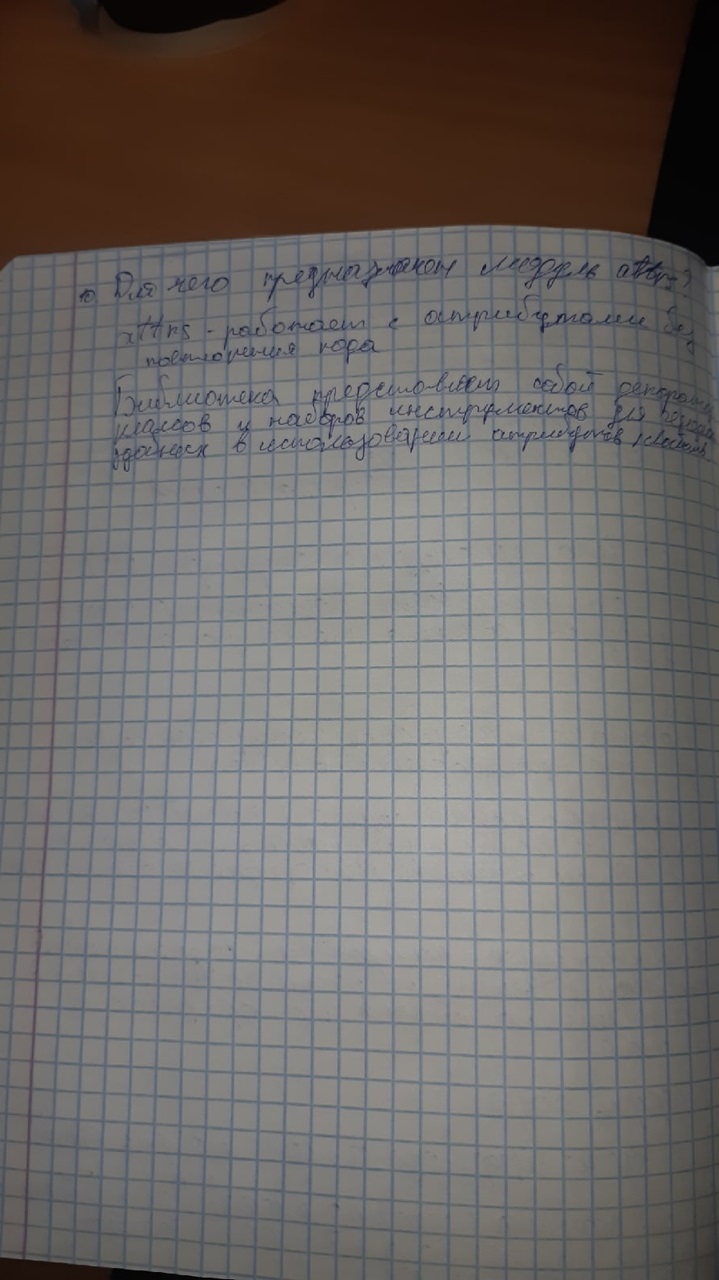 10. Для чего предназначен модуль attrs?
attrs - работает с атрибутами без
повторения кода
Библиотека представляет собой
классов и наборов инструментов для
удобных в использовании атрибутов